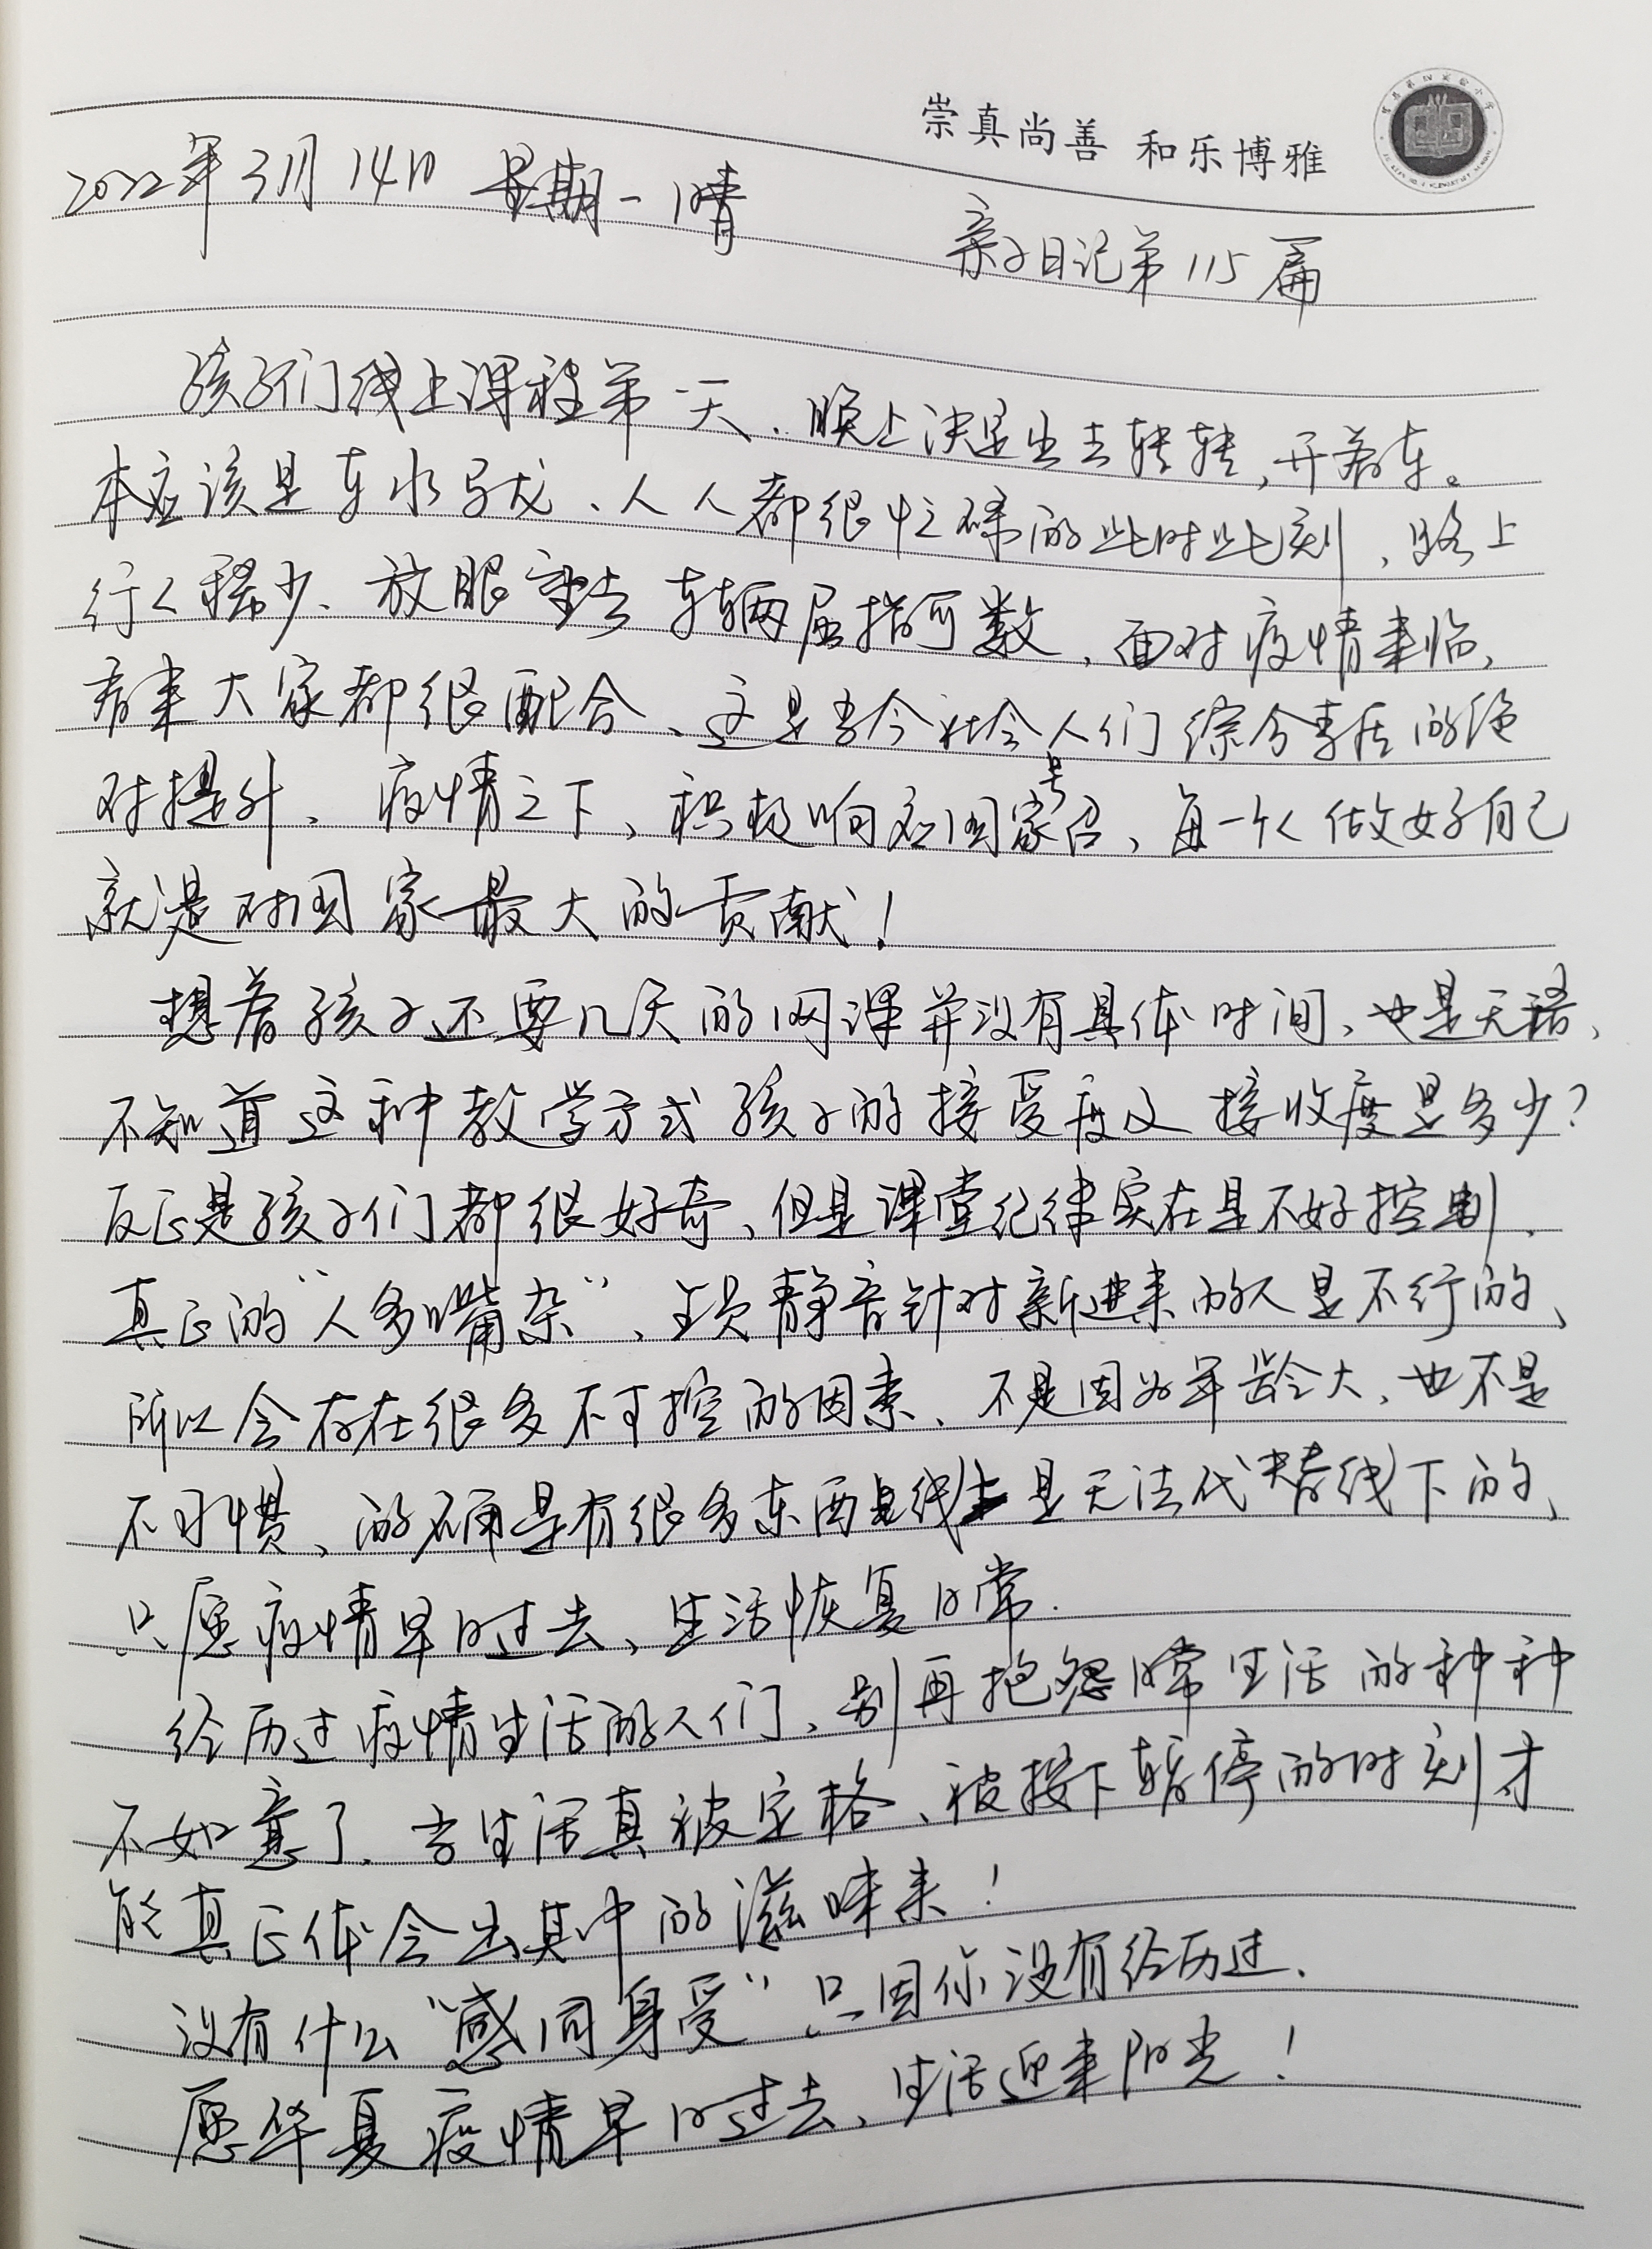 崇真尚善 和乐博雅
2022年3月14日 星期一 晴
亲子日记第115篇
孩子们线上课程第一天、晚上决定出去转转,开着车。
本应该是车水马龙、人人都很忙碌的此时此刻、路上
行人稀少、放眼望去 车辆屈指可数、面对疫情来临,
看来大家都很配合、这是当今社会人们综合素质的绝
对提升、疫情之下、积极响应国家号召、每一个人做好自己
就是对国家最大的贡献!
想着孩子还要几天的网课并没有具体时间、也是无语、
不知道这种教学方式孩子的接受度及接收度是多少?
反正是孩子们都很好奇、但是课堂纪律实在是不好控制.
真正的“人多嘴杂”、全员静音针对新进来的人是不行的、
所以会存在很多不可控的因素、不是因为年龄大、也不是
不习惯、的确是有很多东西是线上是无法代替线下的、
只愿疫情早日过去、生活恢复日常.
经历过疫情生活的人们、别再抱怨日常生活的种种
不如意了、当生活真被定格、被按下暂停的时刻才
能真正体会出其中的滋味来!
没有什么“感同身受”只因你没有经历过.
愿华夏疫情早日过去、生活迎来阳光!